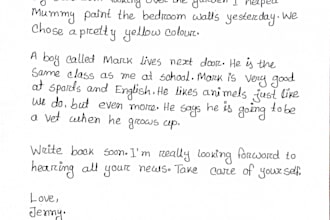 looking over the garden I helped
Mummy paint the bedroom walls yesterday. We
chose a pretty yellow colour.
A boy called Mark lives next door. He is the
same class as me at school. Mark is very good
at sports and English. He likes animels just like
we do, but even more. He says he is going to be
a vet when he grows up.
Write book soon. I'm really looking forward to
hearing all your news. Take care of yourself,
Love,
Jenny.